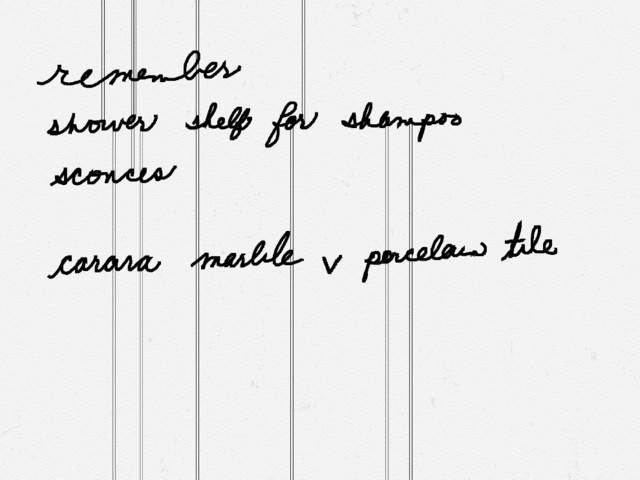 remember
shower shelf for shampoo
sconces
carara marble v porcelain tile